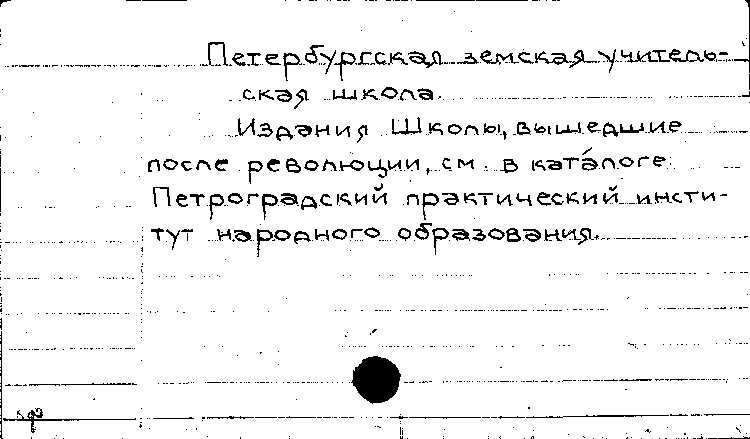 Петербургская земская учитель-
ская школа.
Издания Школы, вышедшие
после революции, см. в каталоге:
Петроградский практический инсти-
тут народного образования.